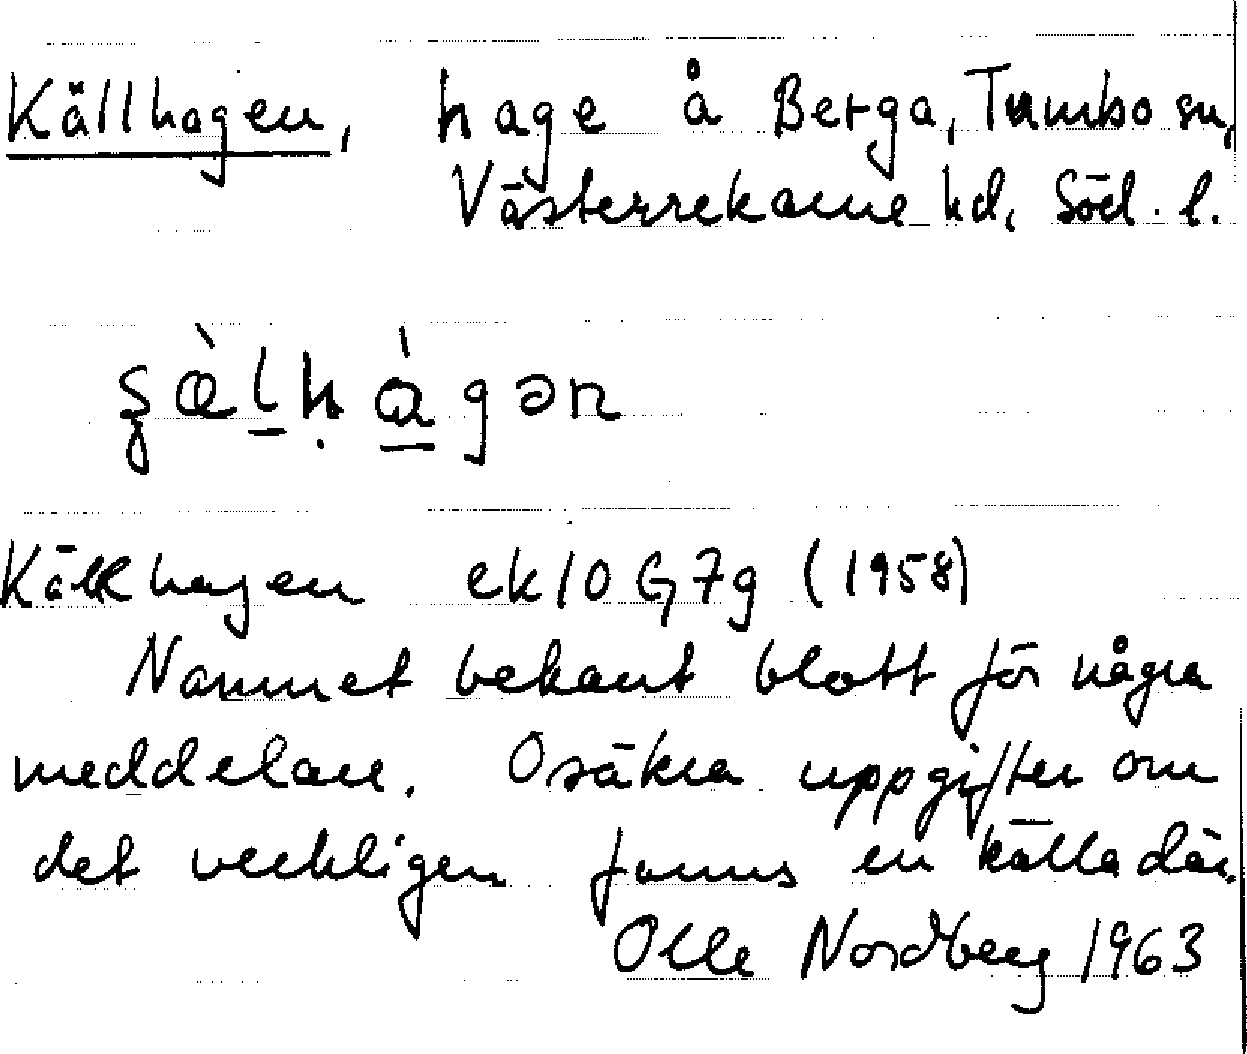 Källhagen, hage å Berga, Tumbo sn,
Västerrekarne hd, Söd. l.
ʂæ̀lḥɑ̀gən
Källhagen ek 10 G 7g (1958)
Namnet bekant blott för några
meddelare. Osäkra uppgifter om
det verkligen funnits en källa där.
Olle Nordberg 1963